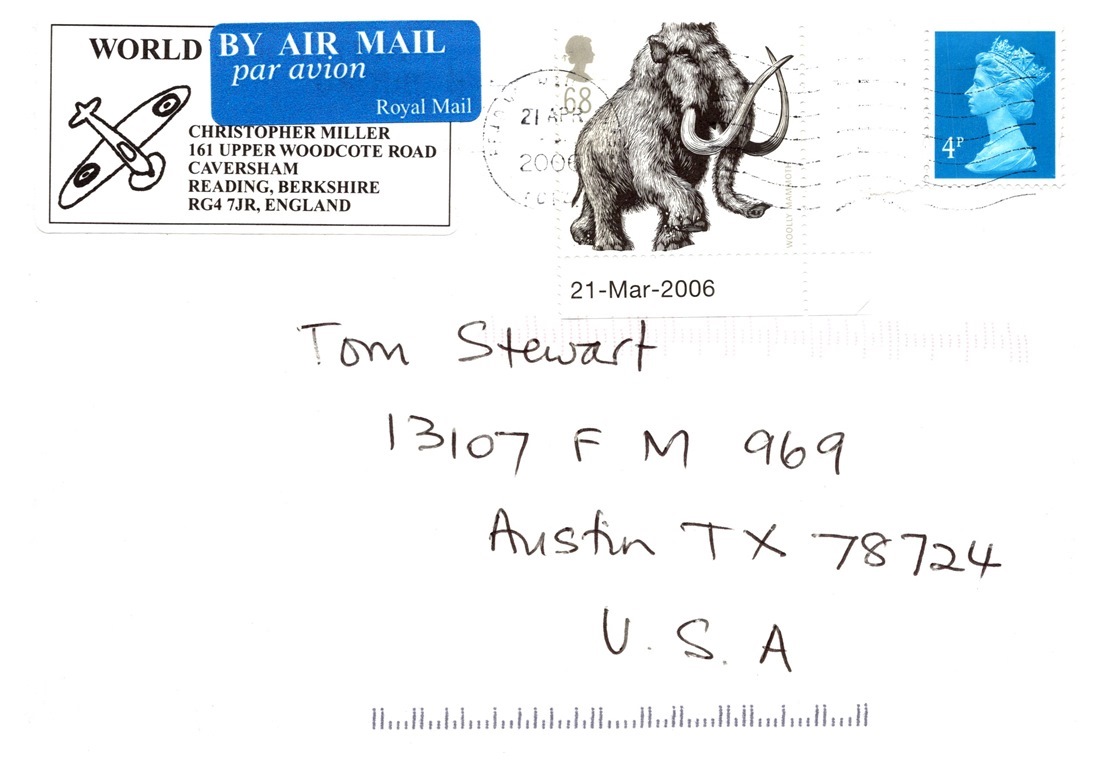 WORLD
BY AIR MAIL
par avion
Royal Mail
CHRISTOPHER MILLER
161 UPPER WOODCOTE ROAD
CAVERSHAM
READING, BERKSHIRE
RG4 7JR, ENGLAND
68
21 APR
2006
WOOLLY MAMMOTH
21-Mar-2006
4P
Tom Stewart
13107 F M 969
Austin TX 78724
U. S. A